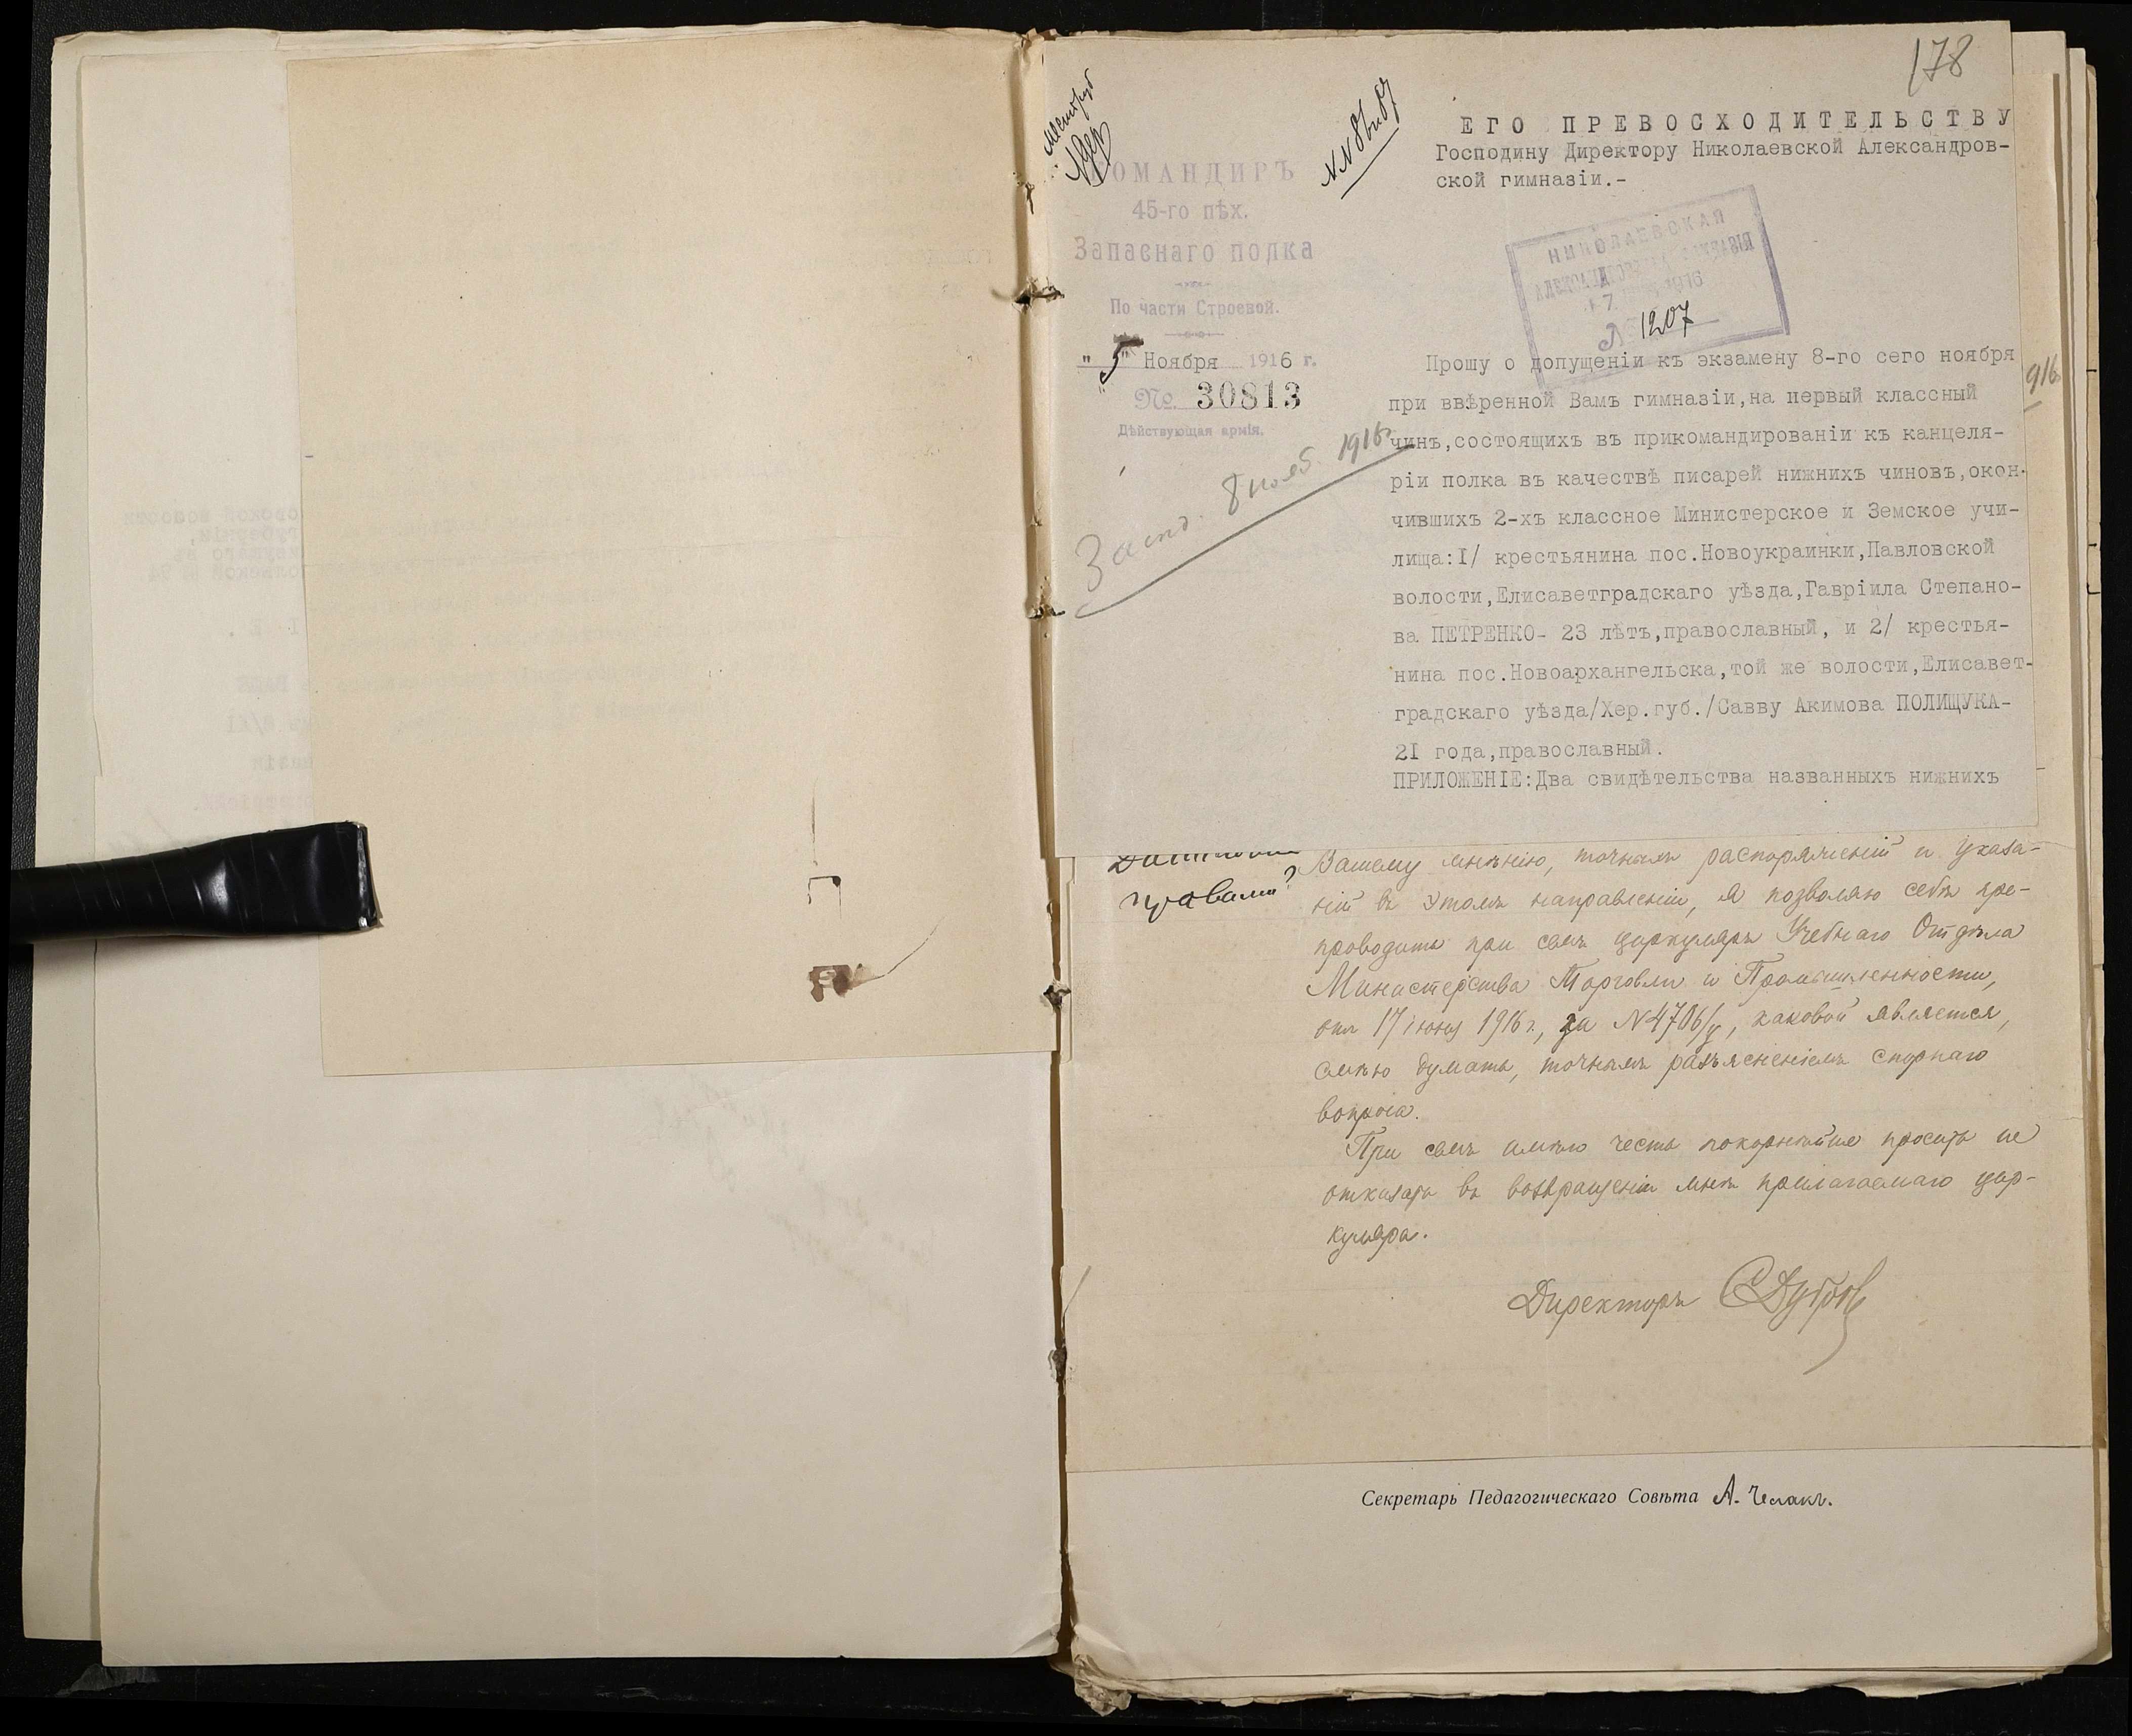 178
КОМАНДИРЪ
45-го пѣх.
Запаснаго полка
По части Строевой.
"5" Ноября 1916 г.
№ 30813
Дѣйствующая армія.
ЕГО ПРЕВОСХОДИТЕЛЬСТВУ
Господину Директору Николаевской Александров-
ской гимназіи.-
НИКОЛАЕВСКАЯ
АЛЕКСАНДРОВСКАЯ ГИМНАЗІЯ
1916
№ 1207
8 нояб. 1916 г.
Прошу о допущеніи къ экзамену 8-го сего ноября
при ввѣренной Вамъ гимназіи,на первый классный
чинъ,состоящихъ въ прикомандированіи къ канцеля-
ріи полка въ качествѣ писарей нижнихъ чиновъ,окон-
чившихъ 2-хъ классное Министерское и Земское учи-
лища:I/ крестьянина пос.Новоукраинки,Павловской
волости,Елисаветградскаго уѣзда,Гавріила Степано-
ва ПЕТРЕНКО- 23 лѣтъ,православный, и 2/ крестья-
нина пос.Новоархангельска,той же волости,Елисавет-
градскаго уѣзда/Хер.губ./Савву Акимова ПОЛИЩУКА-
2I года,православный.
ПРИЛОЖЕНІЕ:Два свидѣтельства названныхъ нижнихъ
916
правами?
Вашему мнѣнію, точныхъ распоряженій и указа-
ній въ этомъ направленіи, я позволяю себѣ пре-
проводить при семъ циркуляръ Учебнаго Отдѣла
Министерства Торговли и Промышленности,
отъ 17 іюня 1916 г., за N 4706/у, каковой является,
смѣю думать, точнымъ разъясненіемъ спорнаго
вопроса.
При семъ имѣю честь покорнѣйше просить не
отказать въ возвращеніи мнѣ прилагаемаго цир-
куляра.
Директоръ
Секретарь Педагогическаго Совѣта А. Челакъ.